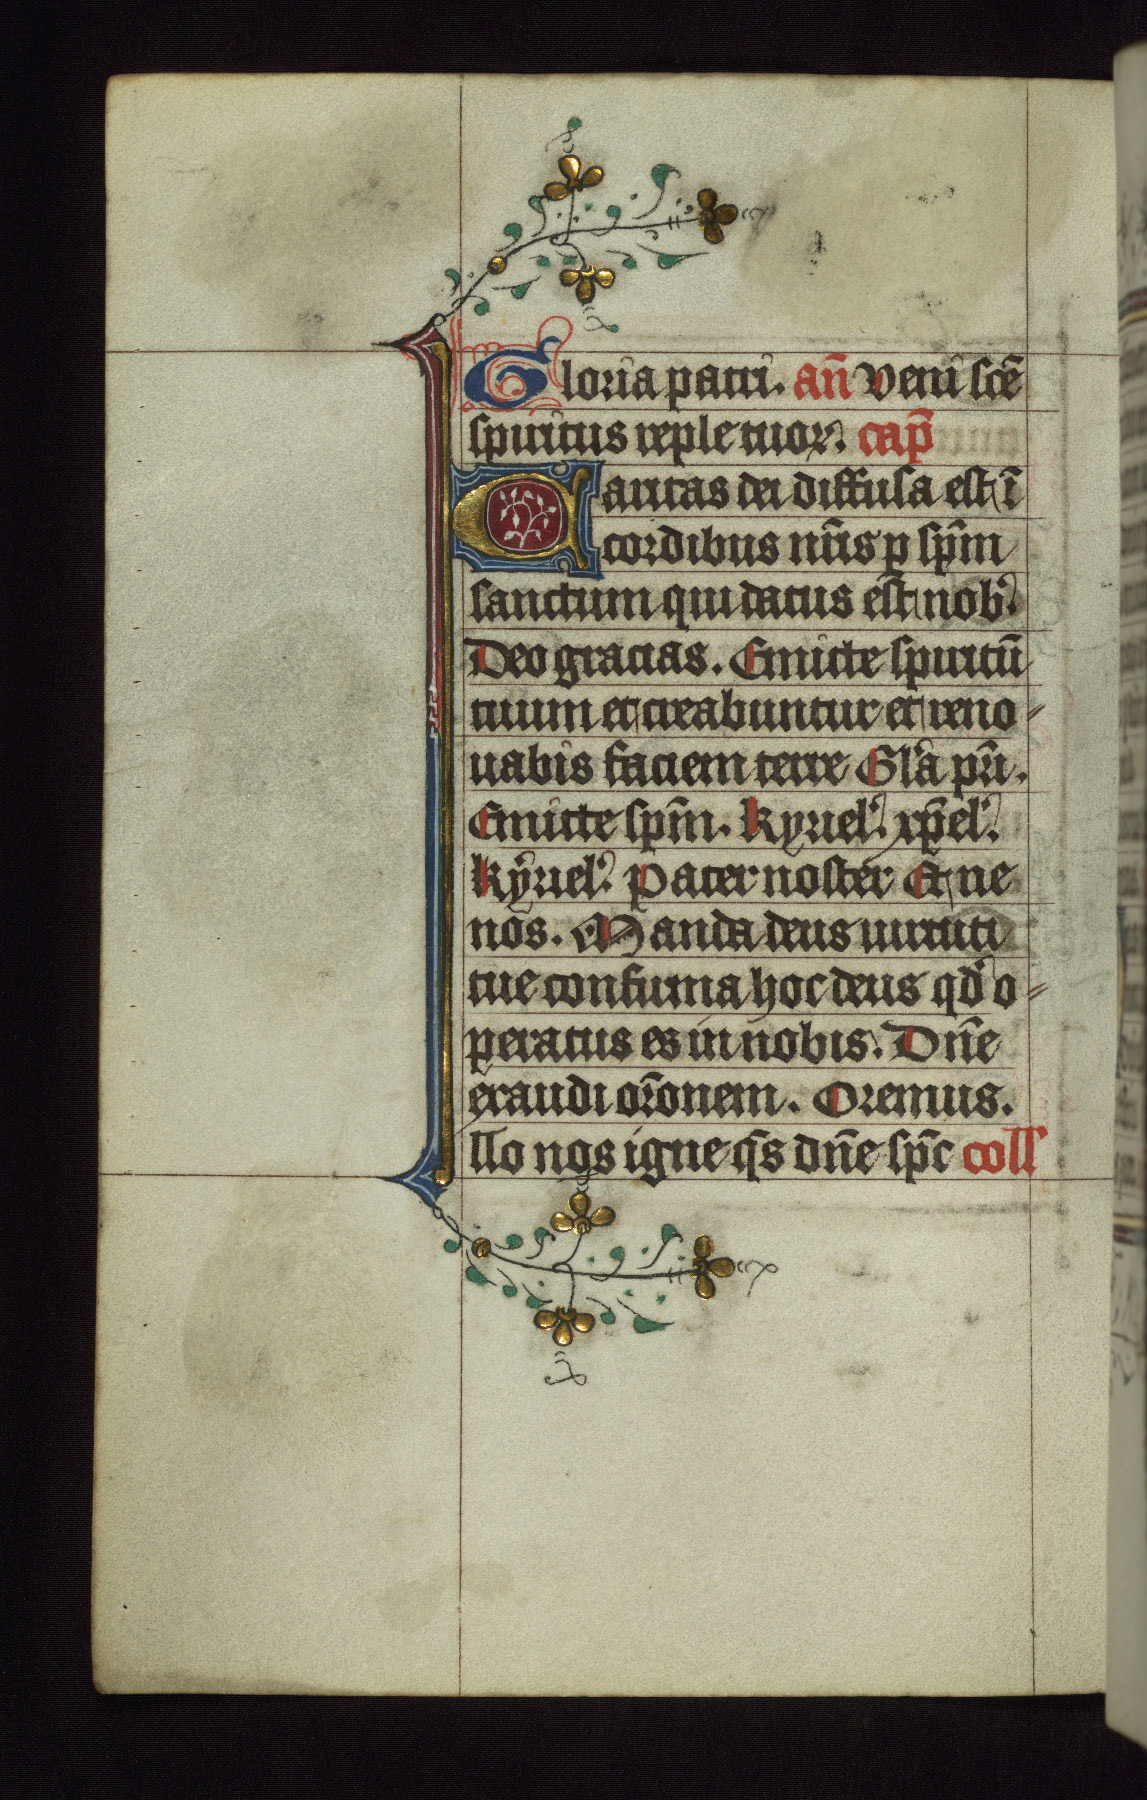 Gloria patri. añ Veni scē
spiritus reple tuoꝝ. cap̄
Caritas dei diffusa est ī
cordibus nr̄is p spm̄
sanctum qui datus est nob᾽
Deo gracias. Emitte spiritū
tuum et creabuntur et reno
uabis faciem terre Gl'a pr̄i.
Emitte spm̄. kyriel᾽. xp̄el᾽.
kyriel᾽. Pater noster Et ne
nos. Manda deus uirtuti
tue confirma hoc deus qd᾽ o
peratus es in nobis. Dn̄e
exaudi or̄onem. Oremus.
Illo nos igne qs̄ dn̄e sp̄c coll᾽